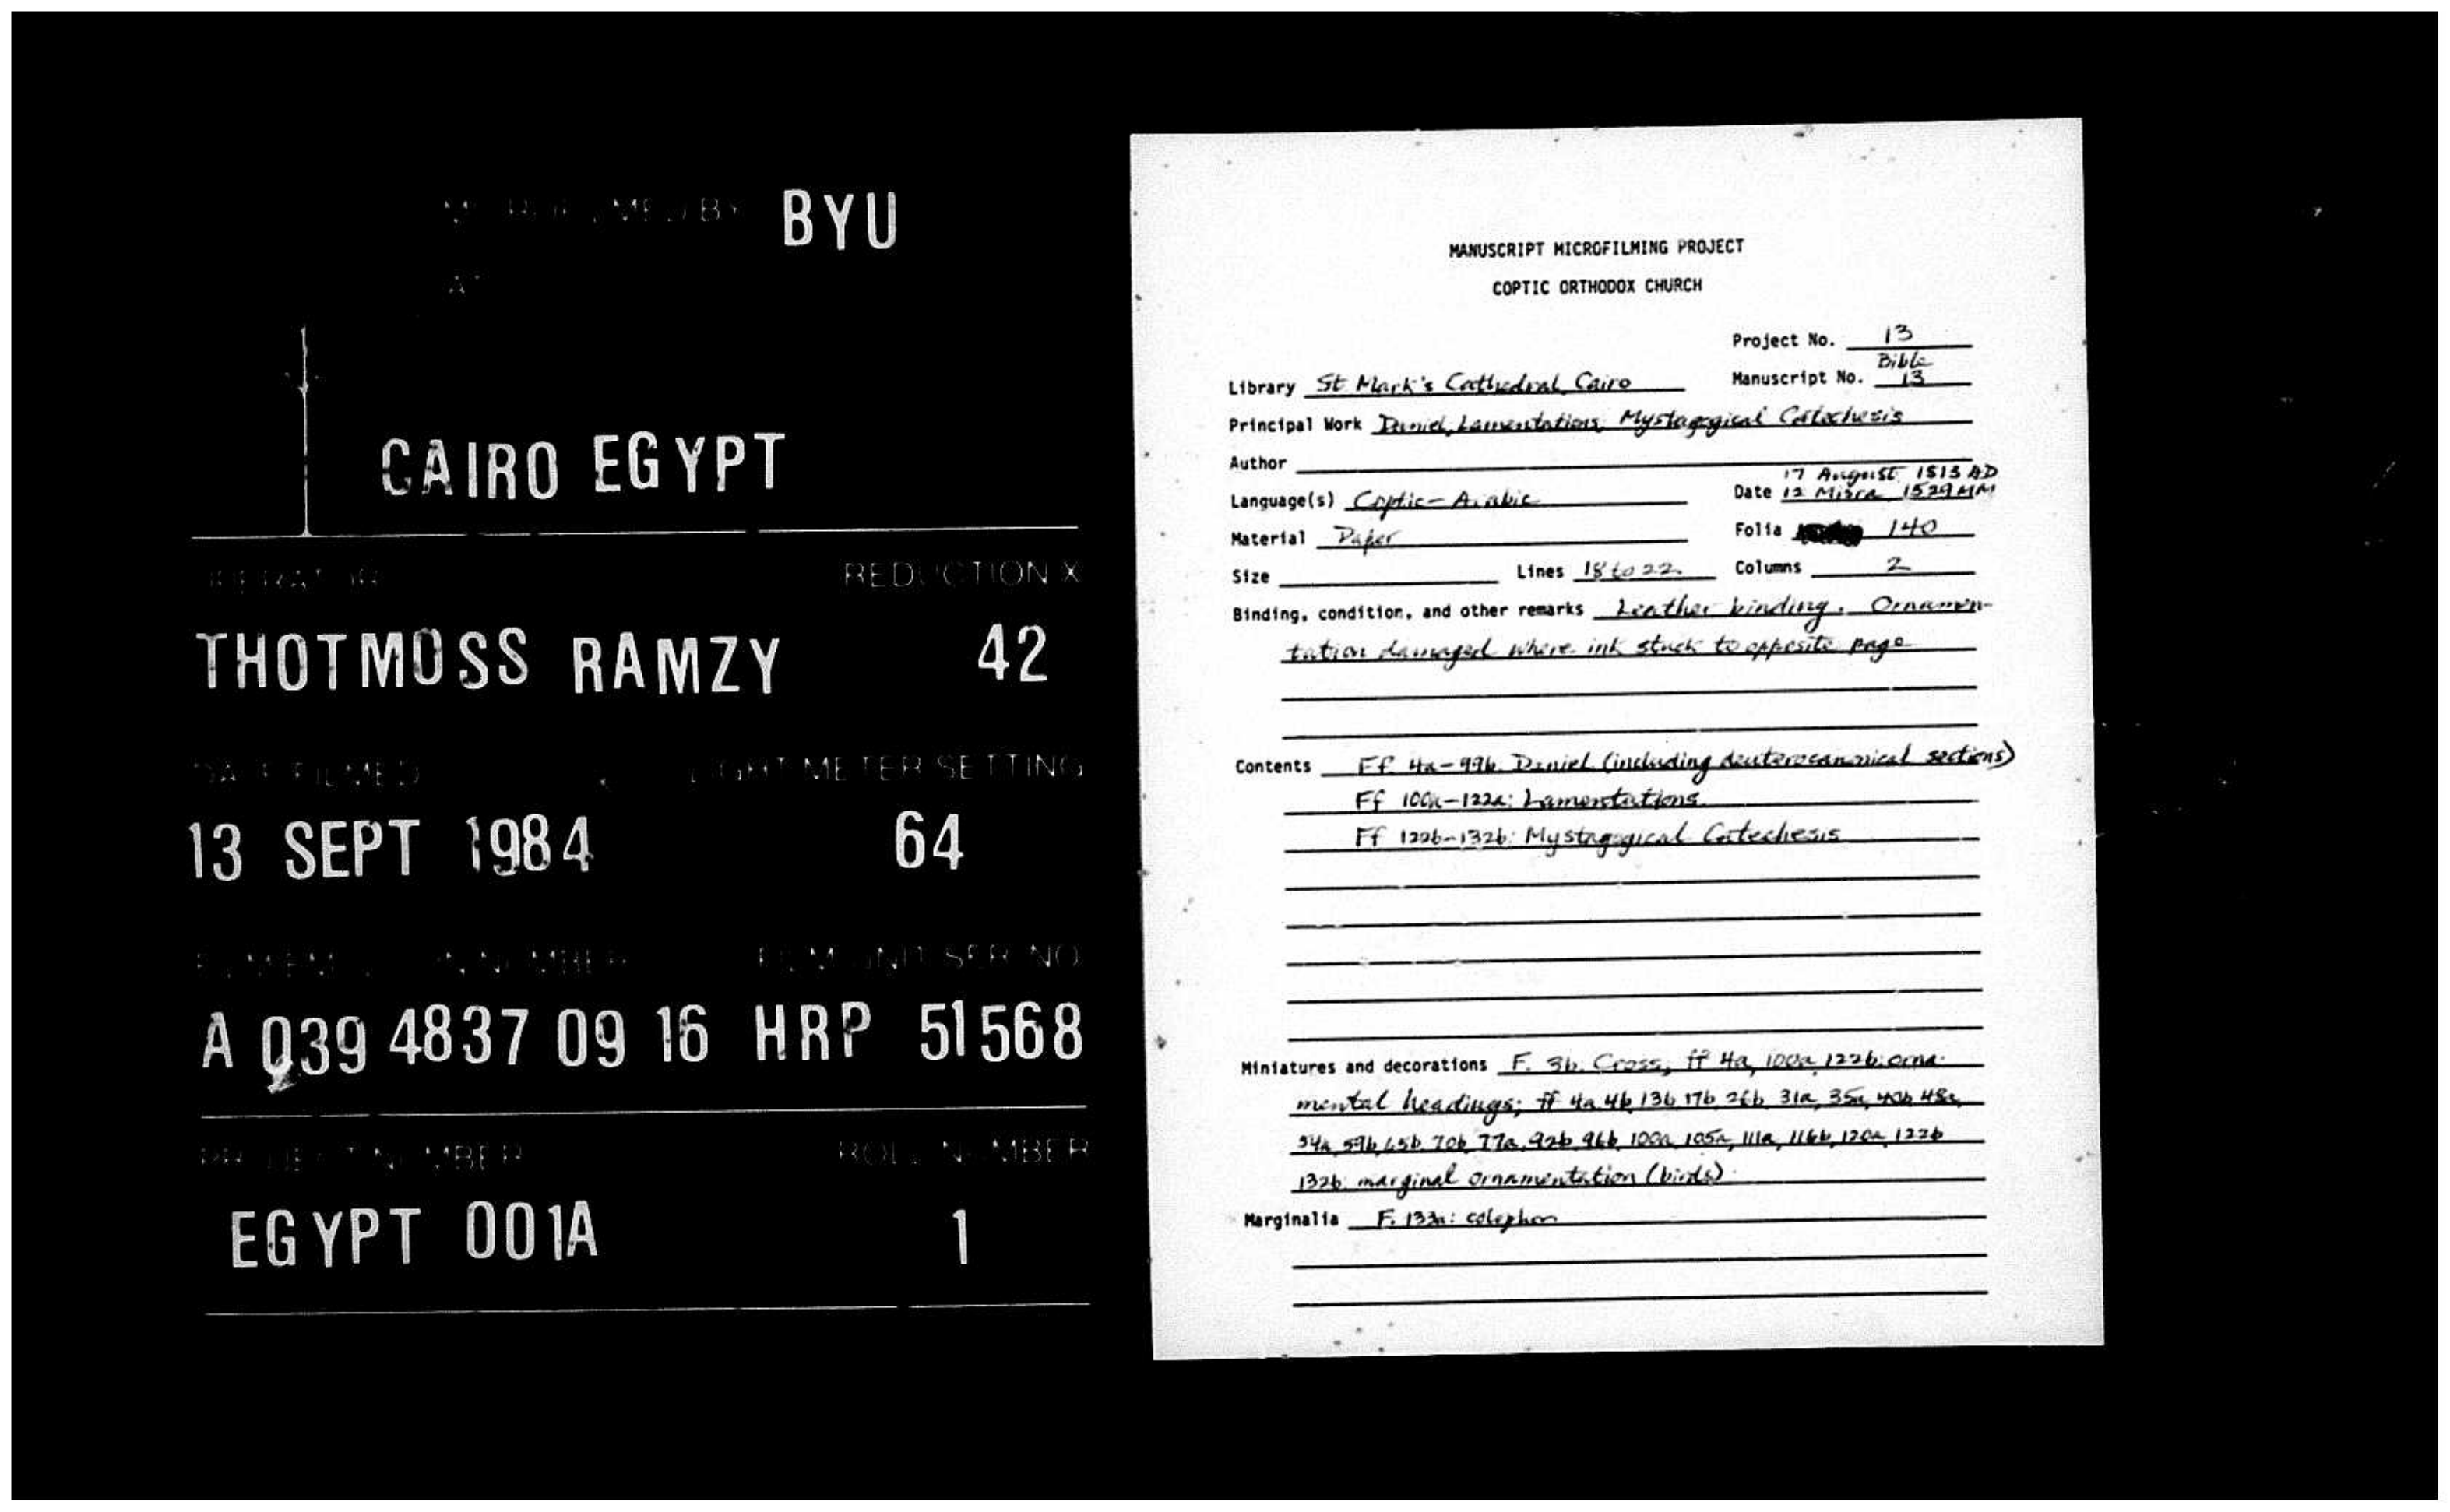 MICROFILMED BY BYU
AT
CAIRO EGYPT
OPERATOR REDUCTION X
THOTMOSS RAMZY 42
DATE FILMED LIGHT METER SETTING
13 SEPT 1984 64
FILM UNIT SER NO
A 039 4837 09 16 HRP 51568
PROJECT NUMBER ROLL NUMBER
EGYPT 001A 1
MANUSCRIPT MICROFILMING PROJECT
COPTIC ORTHODOX CHURCH
Project No. 13
Bible
Library St Mark's Cathedral, Cairo Manuscript No. 13
Principal Work Daniel, Lamentations, Mystagogical Catechesis
Author
17 August 1813 AD
Language(s) Coptic-Arabic Date 12 Misra 1529 MM
Material Paper Folia 140
Size Lines 18 to 22 Columns 2
Binding, condition, and other remarks Leather binding. Ornamen-
tation damaged where ink stuck to opposite page
Contents Ff. 4a-99b. Daniel (including deuterocanonical sections)
Ff 100a-122a: Lamentations
Ff 122b-132b: Mystagogical Catechesis
Miniatures and decorations F. 3b. Cross; ff 4a, 100a, 122b: orna-
mental headings; ff 4a, 4b, 13b, 17b, 26b, 31a, 35a, 40b, 48a,
54a, 59b, 65b, 70b, 77a, 92b, 96b, 100a, 105a, 111a, 116b, 120a, 122b
132b: marginal ornamentation (birds)
Marginalia F. 133a: colophon